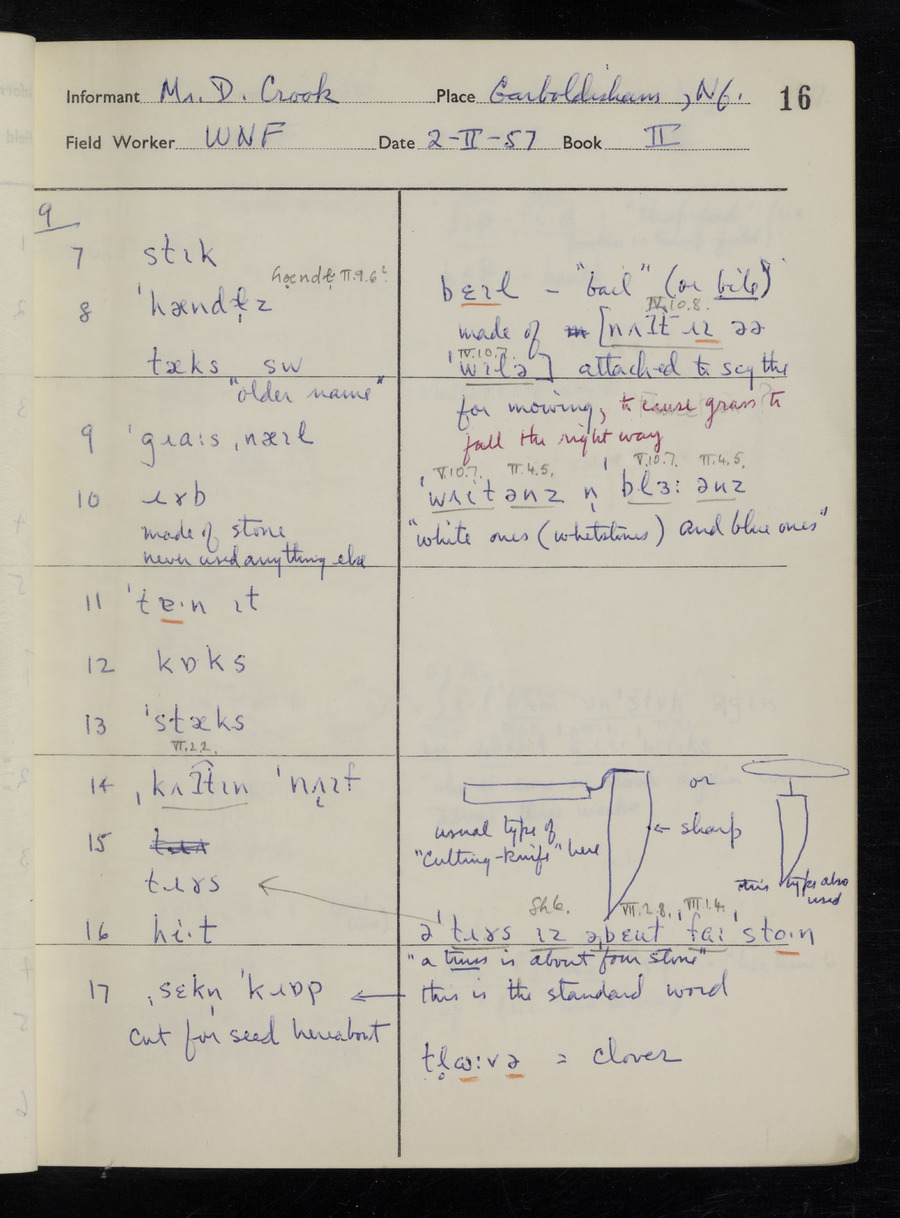 Informant Mr. D. Crook Place Garboldisham, Nf. 16
Field Worker WNF Date 2-II-57 Book II
9
7 stɪk
hændɫ̩ II.9.6²
8 ˈhændɫ̩z
tæks sw
"older name"
9 ˈgɹaːs ˌnæɪl
10 ɹɤb
made of stone
never used anything else
11 ˈtɐˑn ɪt
12 kɒks
13 ˈstæks
VII.2.2.
14 ˌkʌʔtɪn ˈnʌɪf
15
tɹɤs
16 hiˑt
17 ˌsɛkn̩ ˈkɹɒp
cut for seed hereabout
bɛɪl – "bail" (or bile)
IV.10.8.
made of [nʌʔt ɪz əə
IV.10.7.
ˈwɪlə] attached to scythe
for mowing, to cause grass to
fall the right way
V.10.7. II.4.5. V.10.7. II.4.5.
ˈwʌɪt ənz n̩ ˈblɜː ənz
"white ones (whetstones) and blue ones"
or
usual type of
"cutting-knife" here
← sharp
this type also
used
Sh6. VII.2.8. VII.1.4.
əˈtɹɤs ɪz əbɛut faɪ ˈstoɪn
"a truss is about four stone"
this is the standard word
tl̥ɷːvə = clover